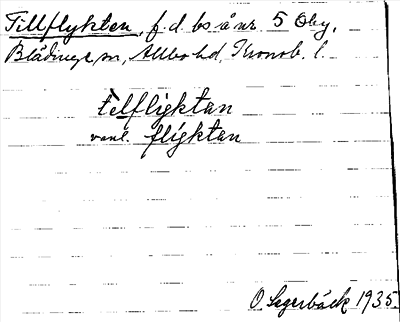 Tillflykten, f.d. bs å nr 5 Oby,
Blädinge sn, Allbo hd, Kronob. l.
telflyktan
vanl. flyktan
O. Segerbäck 1935.